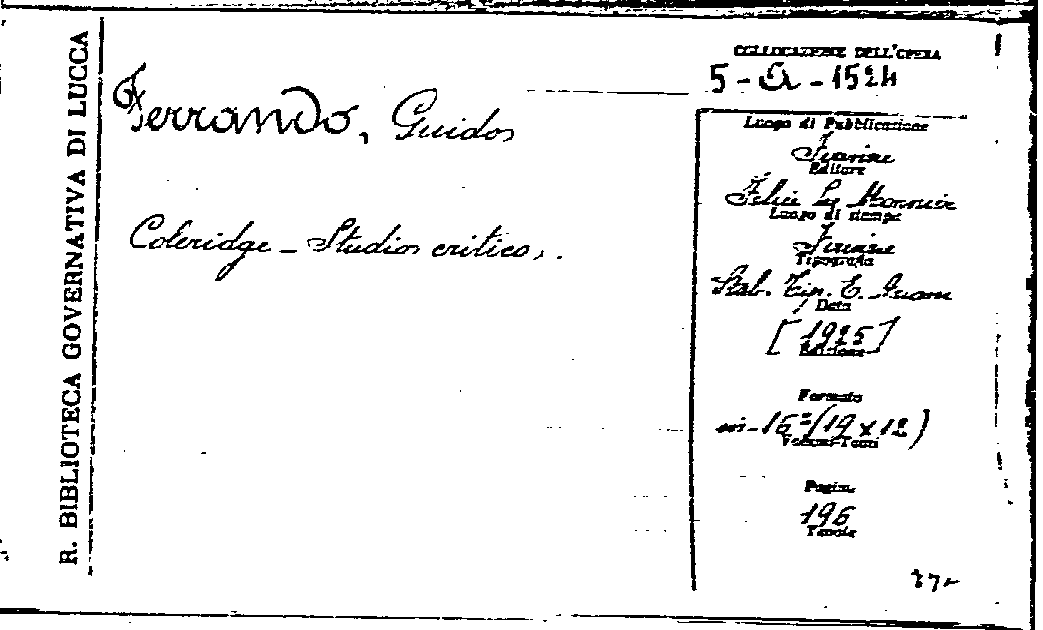 R. BIBLIOTECA GOVERNATIVA DI LUCCA
Ferrando, Guido
Coleridge - Studio critico.
COLLOCAZIONE DELL'OPERA
5-a-1524
Luogo di Pubblicazione
Firenze
Editore
Felice Le Monnier
Luogo di stampa
Firenze
Tipografia
Stab. Tip. E.
Data
[1925]
Edizione
Formato
in-16°(19x12)
Volumi-Tomi
Pagine
196
Tavole